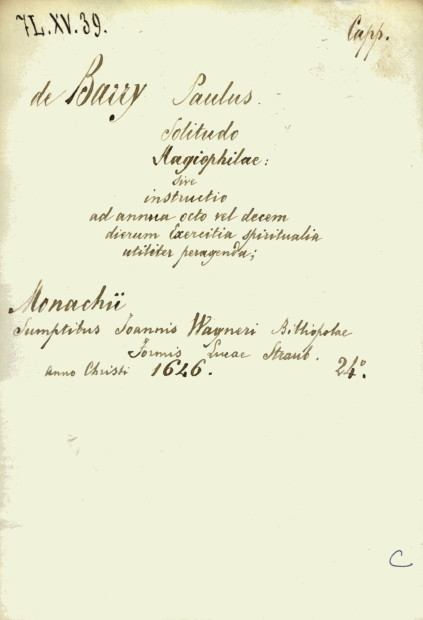 7L.XV.39.
Capp.
de Barry Paulus.
Solitudo
Hagiophilae:
sive
instructio
ad annua octo vel decem
dierum Exercitia spiritualia
utiliter peragenda;
Monachii
Sumptibus Joannis Wagneri Bibliopolae
Formis Lucae Straub.
Anno Christi 1626. 24º.
C